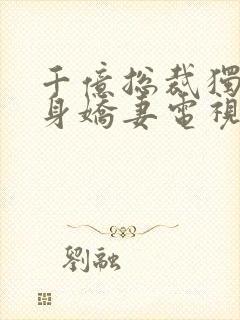 千億總裁獨
身嬌妻電視
劉融